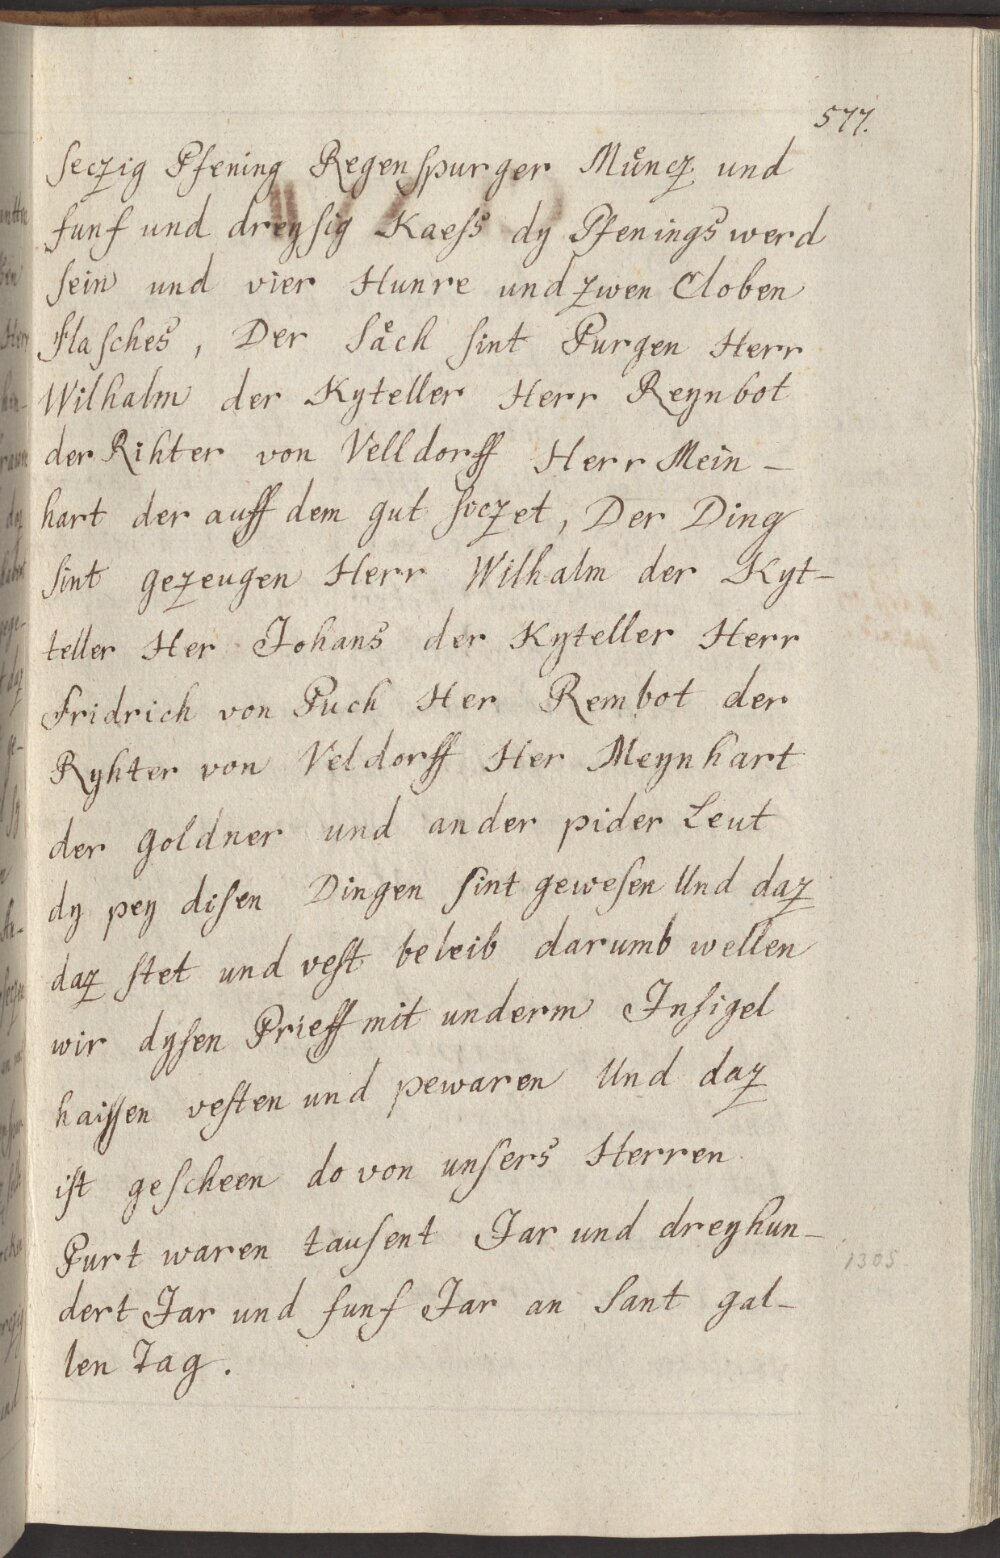 577.
seczig Pfening Regenspurger Mu̇ncz und
funf und dreysig Kaess dy Pfenings werd
sein und vier Hunre und zwen Cloben
Flasches, Der Såch sint Purgen Herr
Wilhalm der Kyteller Herr Reynbot
der Rihter von Velldorff Herr Mein-
hart der auff dem gut soczet, Der Ding
sint gezeugen Herr Wilhalm der Kyt-
teller Her Johans der Kyteller Herr
Fridrich von Puch Her Rembot der
Ryhter von Veldorff Her Meynhart
der Goldner und ander pider Leut
dy pey disen Dingen sint gewesen Und daz
daz stet und vest beleib darumb wellen
wir dysen Prieff mit underm Insigel
haissen vesten und pewaren Und daz
ist gescheen do von unsers Herren
Purt waren tausent Jar und dreyhun-
1305
dert Jar und funf Jar an Sant gal-
len Tag.